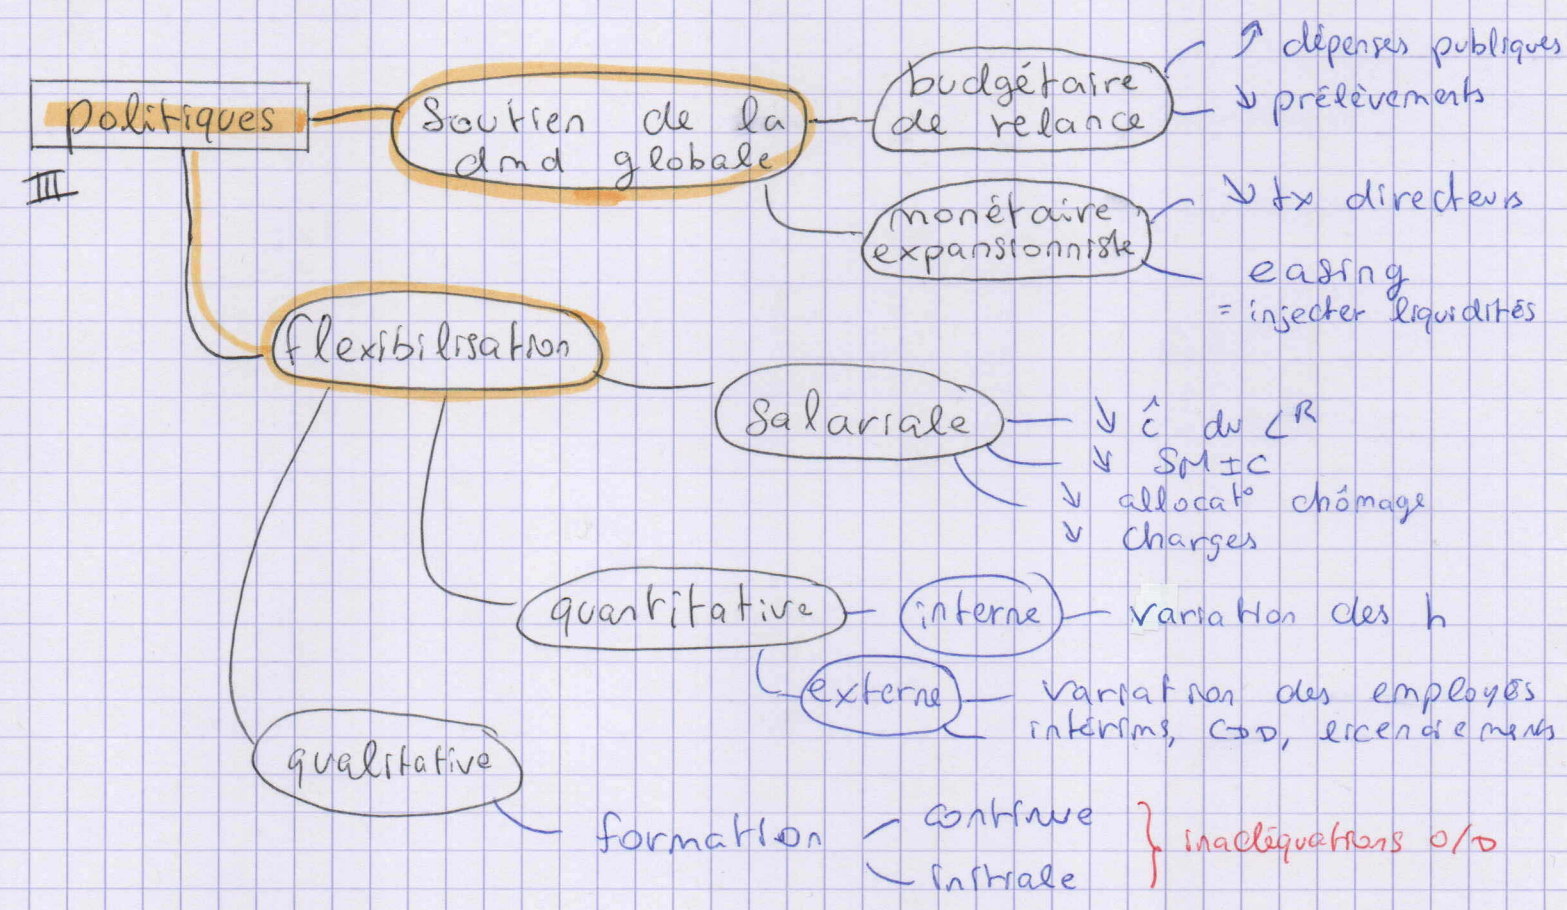 politiques
III
Soutien de la
dmd globale
budgétaire
de relance
↗ dépenses publiques
↘ prélèvements
monétaire
expansionniste
↘ tx directeurs
easing
= injecter liquidités
flexibilisation
salariale
↘ ĉ du L^R
↘ SMIC
↘ allocat° chômage
↘ charges
quantitative
interne
variation des h
externe
variation des employés
intérims, CDD, licenciements
qualitative
formation
continue
initiale
inadéquations O/D